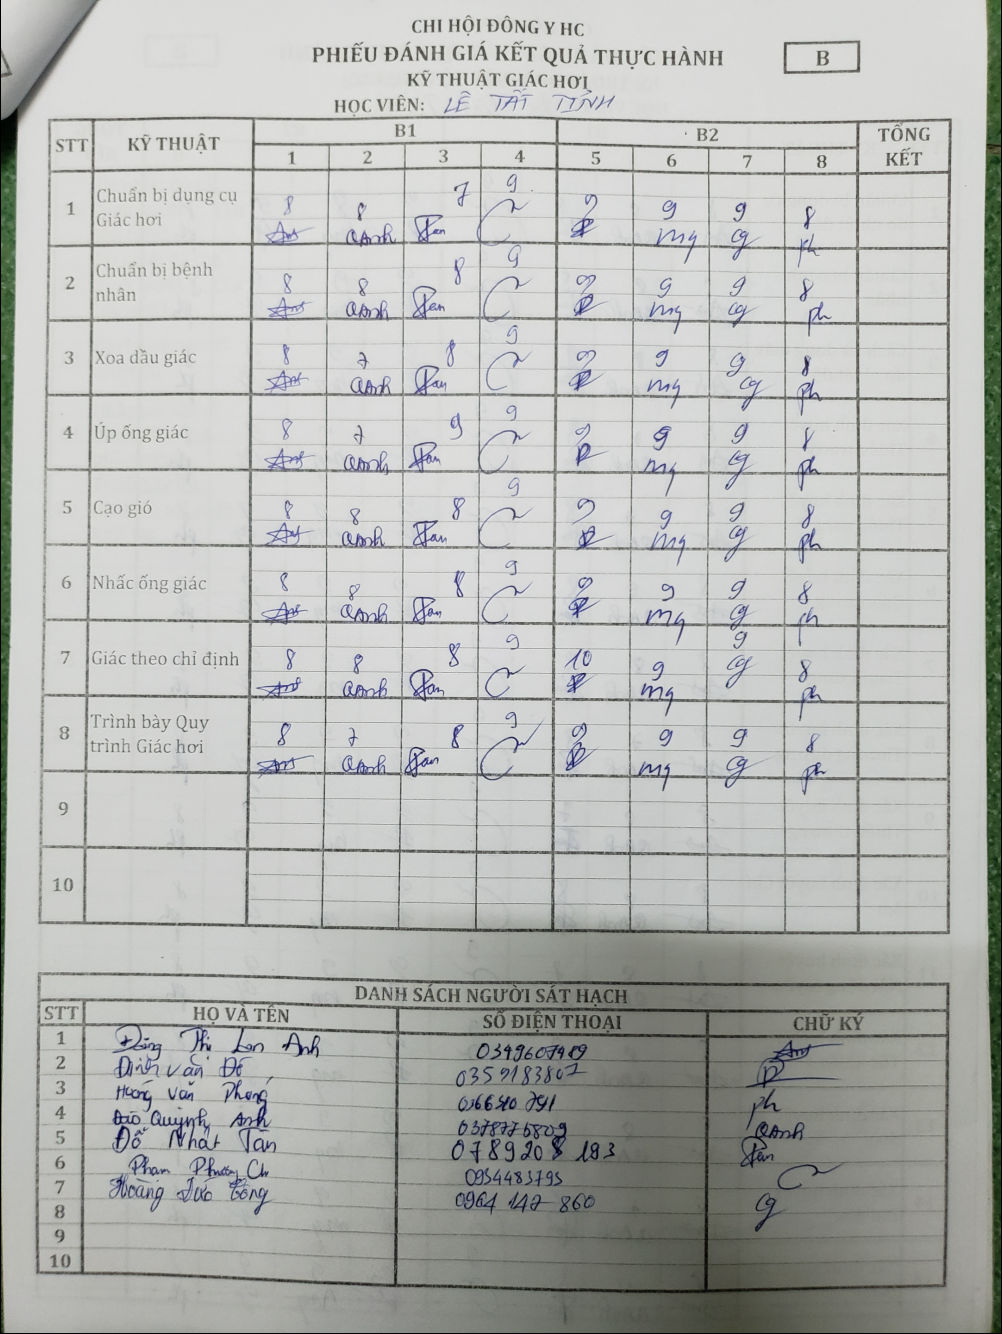 CHI HỘI ĐÔNG Y HC
PHIẾU ĐÁNH GIÁ KẾT QUẢ THỰC HÀNH
B
KỸ THUẬT GIÁC HƠI
HỌC VIÊN: LÊ TẤT TỊNH
STT KỸ THUẬT B1 B2 TỔNG KẾT
1 2 3 4 5 6 7 8
1 Chuẩn bị dụng cụ Giác hơi 8 8 7 9 9 9 9 8
Anh QAnh Tan mq cg ph
2 Chuẩn bị bệnh nhân 8 8 8 9 9 9 9 8
Anh QAnh Tan mq cg ph
3 Xoa dầu giác 8 7 8 9 9 9 9 8
Anh QAnh Tan mq cg ph
4 Úp ống giác 8 7 9 9 9 9 9 8
Anh QAnh Tan mq cg ph
5 Cạo gió 8 8 8 9 9 9 9 8
Anh QAnh Tan mq cg ph
6 Nhấc ống giác 8 8 8 9 9 9 9 8
Anh QAnh Tan mq cg ph
7 Giác theo chỉ định 8 8 8 9 10 9 9 8
Anh QAnh Tan mq cg ph
8 Trình bày Quy trình Giác hơi 8 7 8 9 9 9 9 8
Anh QAnh Tan mq cg ph
9
10
DANH SÁCH NGƯỜI SÁT HẠCH
STT HỌ VÀ TÊN SỐ ĐIỆN THOẠI CHỮ KÝ
1 Đặng Thị Lan Anh 0349607989 Anh
2 Đinh Văn Đô 0359183807
3 Văn Phong ph
4 Đào Quỳnh Anh 0378775809 QAnh
5 Đỗ Nhật Tân 0789208193 Tan
6 Phạm Phương Chi 0954483795
7 Hoàng Đức Công 0964 147 860 cg
8
9
10